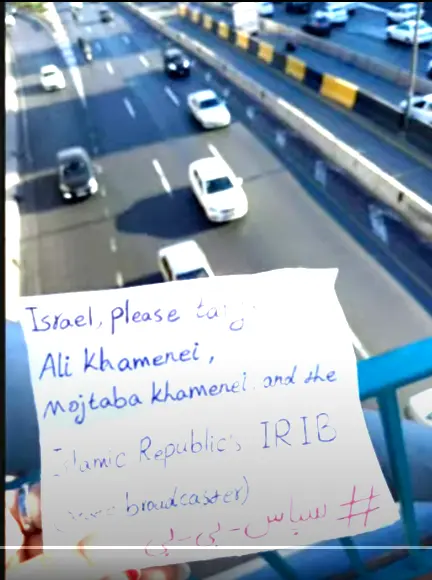 Israel, please
Ali Khamenei,
Mojtaba khamenei. and the
Islamic Republic's IRIB
broadcaster)
# سپاس-بی-بی